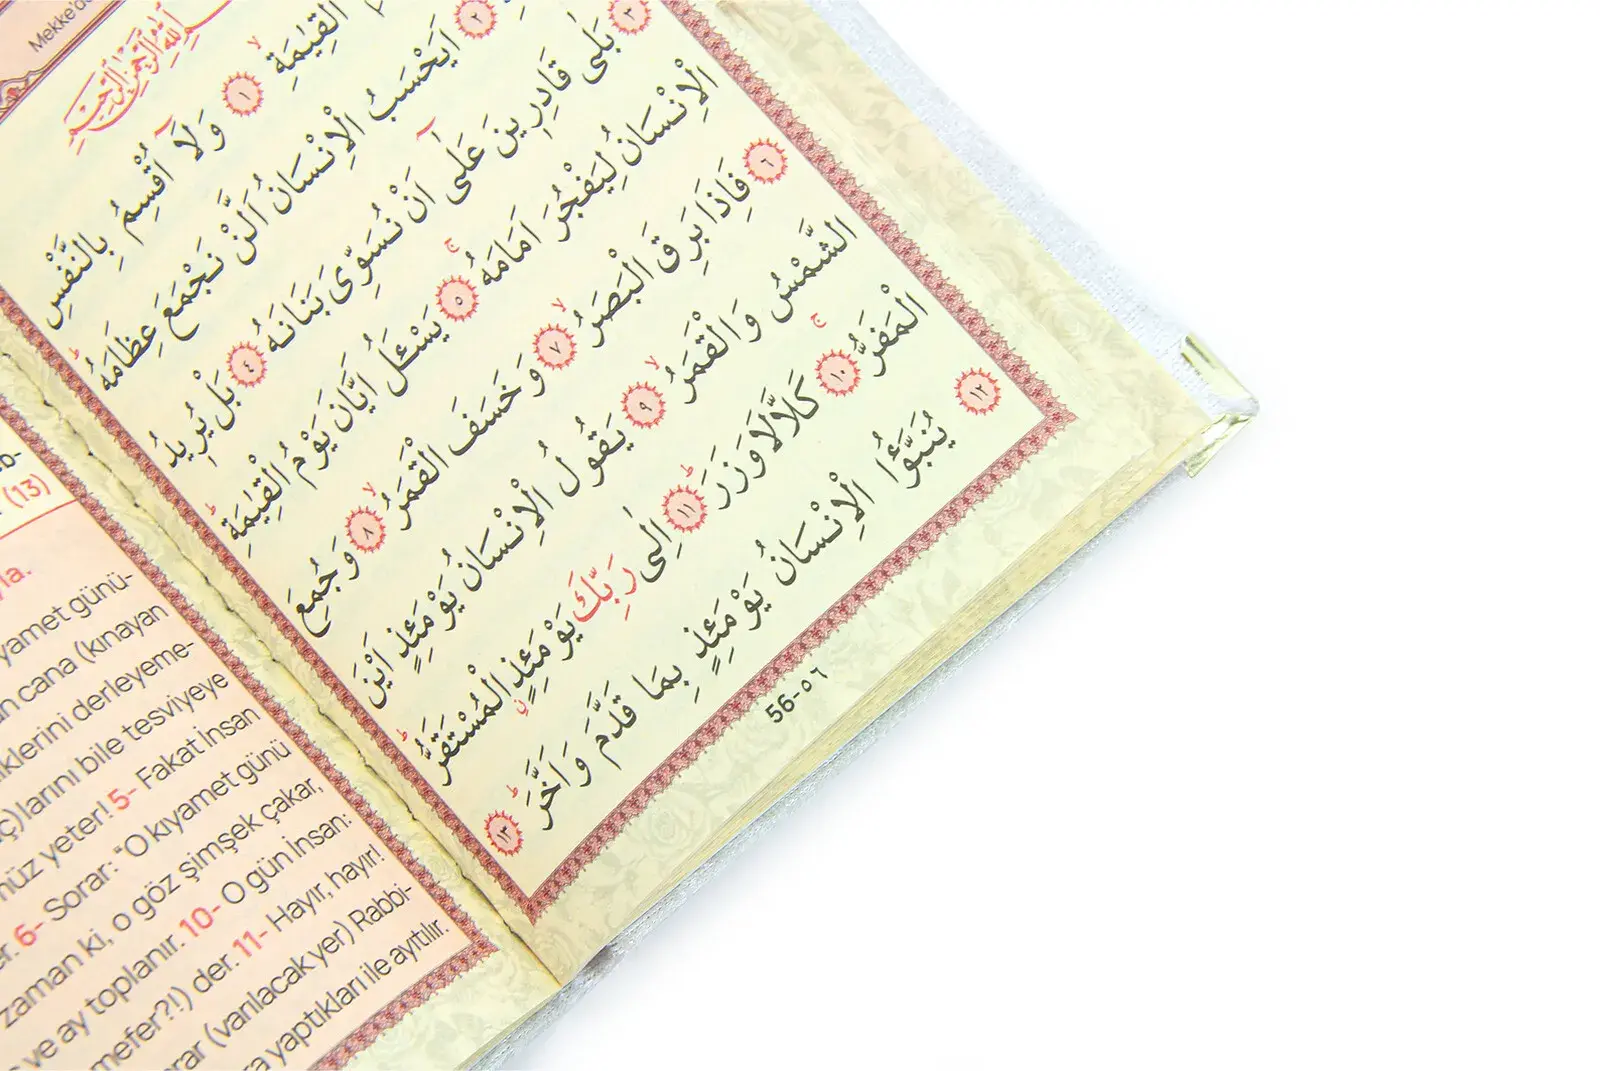 Mekke'de
بِسْمِ اللّٰهِ الرَّحْمٰنِ الرَّحِيمِ
الْقِيٰمَةِ ﴿١﴾ وَلَآ اُقْسِمُ بِالنَّفْسِ
﴿٢﴾ اَيَحْسَبُ الْاِنْسَانُ اَلَّنْ نَجْمَعَ عِظَامَهُ
﴿٣﴾ بَلٰى قَادِرٖينَ عَلٰٓى اَنْ نُسَوِّىَ بَنَانَهُ ﴿٤﴾ بَلْ يُرٖيدُ
الْاِنْسَانُ لِيَفْجُرَ اَمَامَهُ ﴿٥﴾ يَسْـَٔلُ اَيَّانَ يَوْمُ الْقِيٰمَةِ
﴿٦﴾ فَاِذَا بَرِقَ الْبَصَرُ ﴿٧﴾ وَخَسَفَ الْقَمَرُ ﴿٨﴾ وَجُمِعَ
الشَّمْسُ وَالْقَمَرُ ﴿٩﴾ يَقُولُ الْاِنْسَانُ يَوْمَئِذٍ اَيْنَ
الْمَفَرُّ ﴿١٠﴾ كَلَّا لَا وَزَرَ ﴿١١﴾ اِلٰى رَبِّكَ يَوْمَئِذٍ الْمُسْتَقَرُّ
﴿١٢﴾ يُنَبَّؤُا الْاِنْسَانُ يَوْمَئِذٍ بِمَا قَدَّمَ وَاَخَّرَ ﴿١٣﴾
56-٥٦
(13)
yamet günü-
cana (kınayan
iklerini derleyeme-
)larını bile tesviyeye
yeter! 5- Fakat İnsan
6- Sorar: “O kıyamet günü
zaman ki, o göz şimşek çakar,
ve ay toplanır. 10- O gün İnsan:
mefer?!) der. 11- Hayır, hayır!
(varılacak yer) Rabbi-
yaptıkları ile ayıtılır.